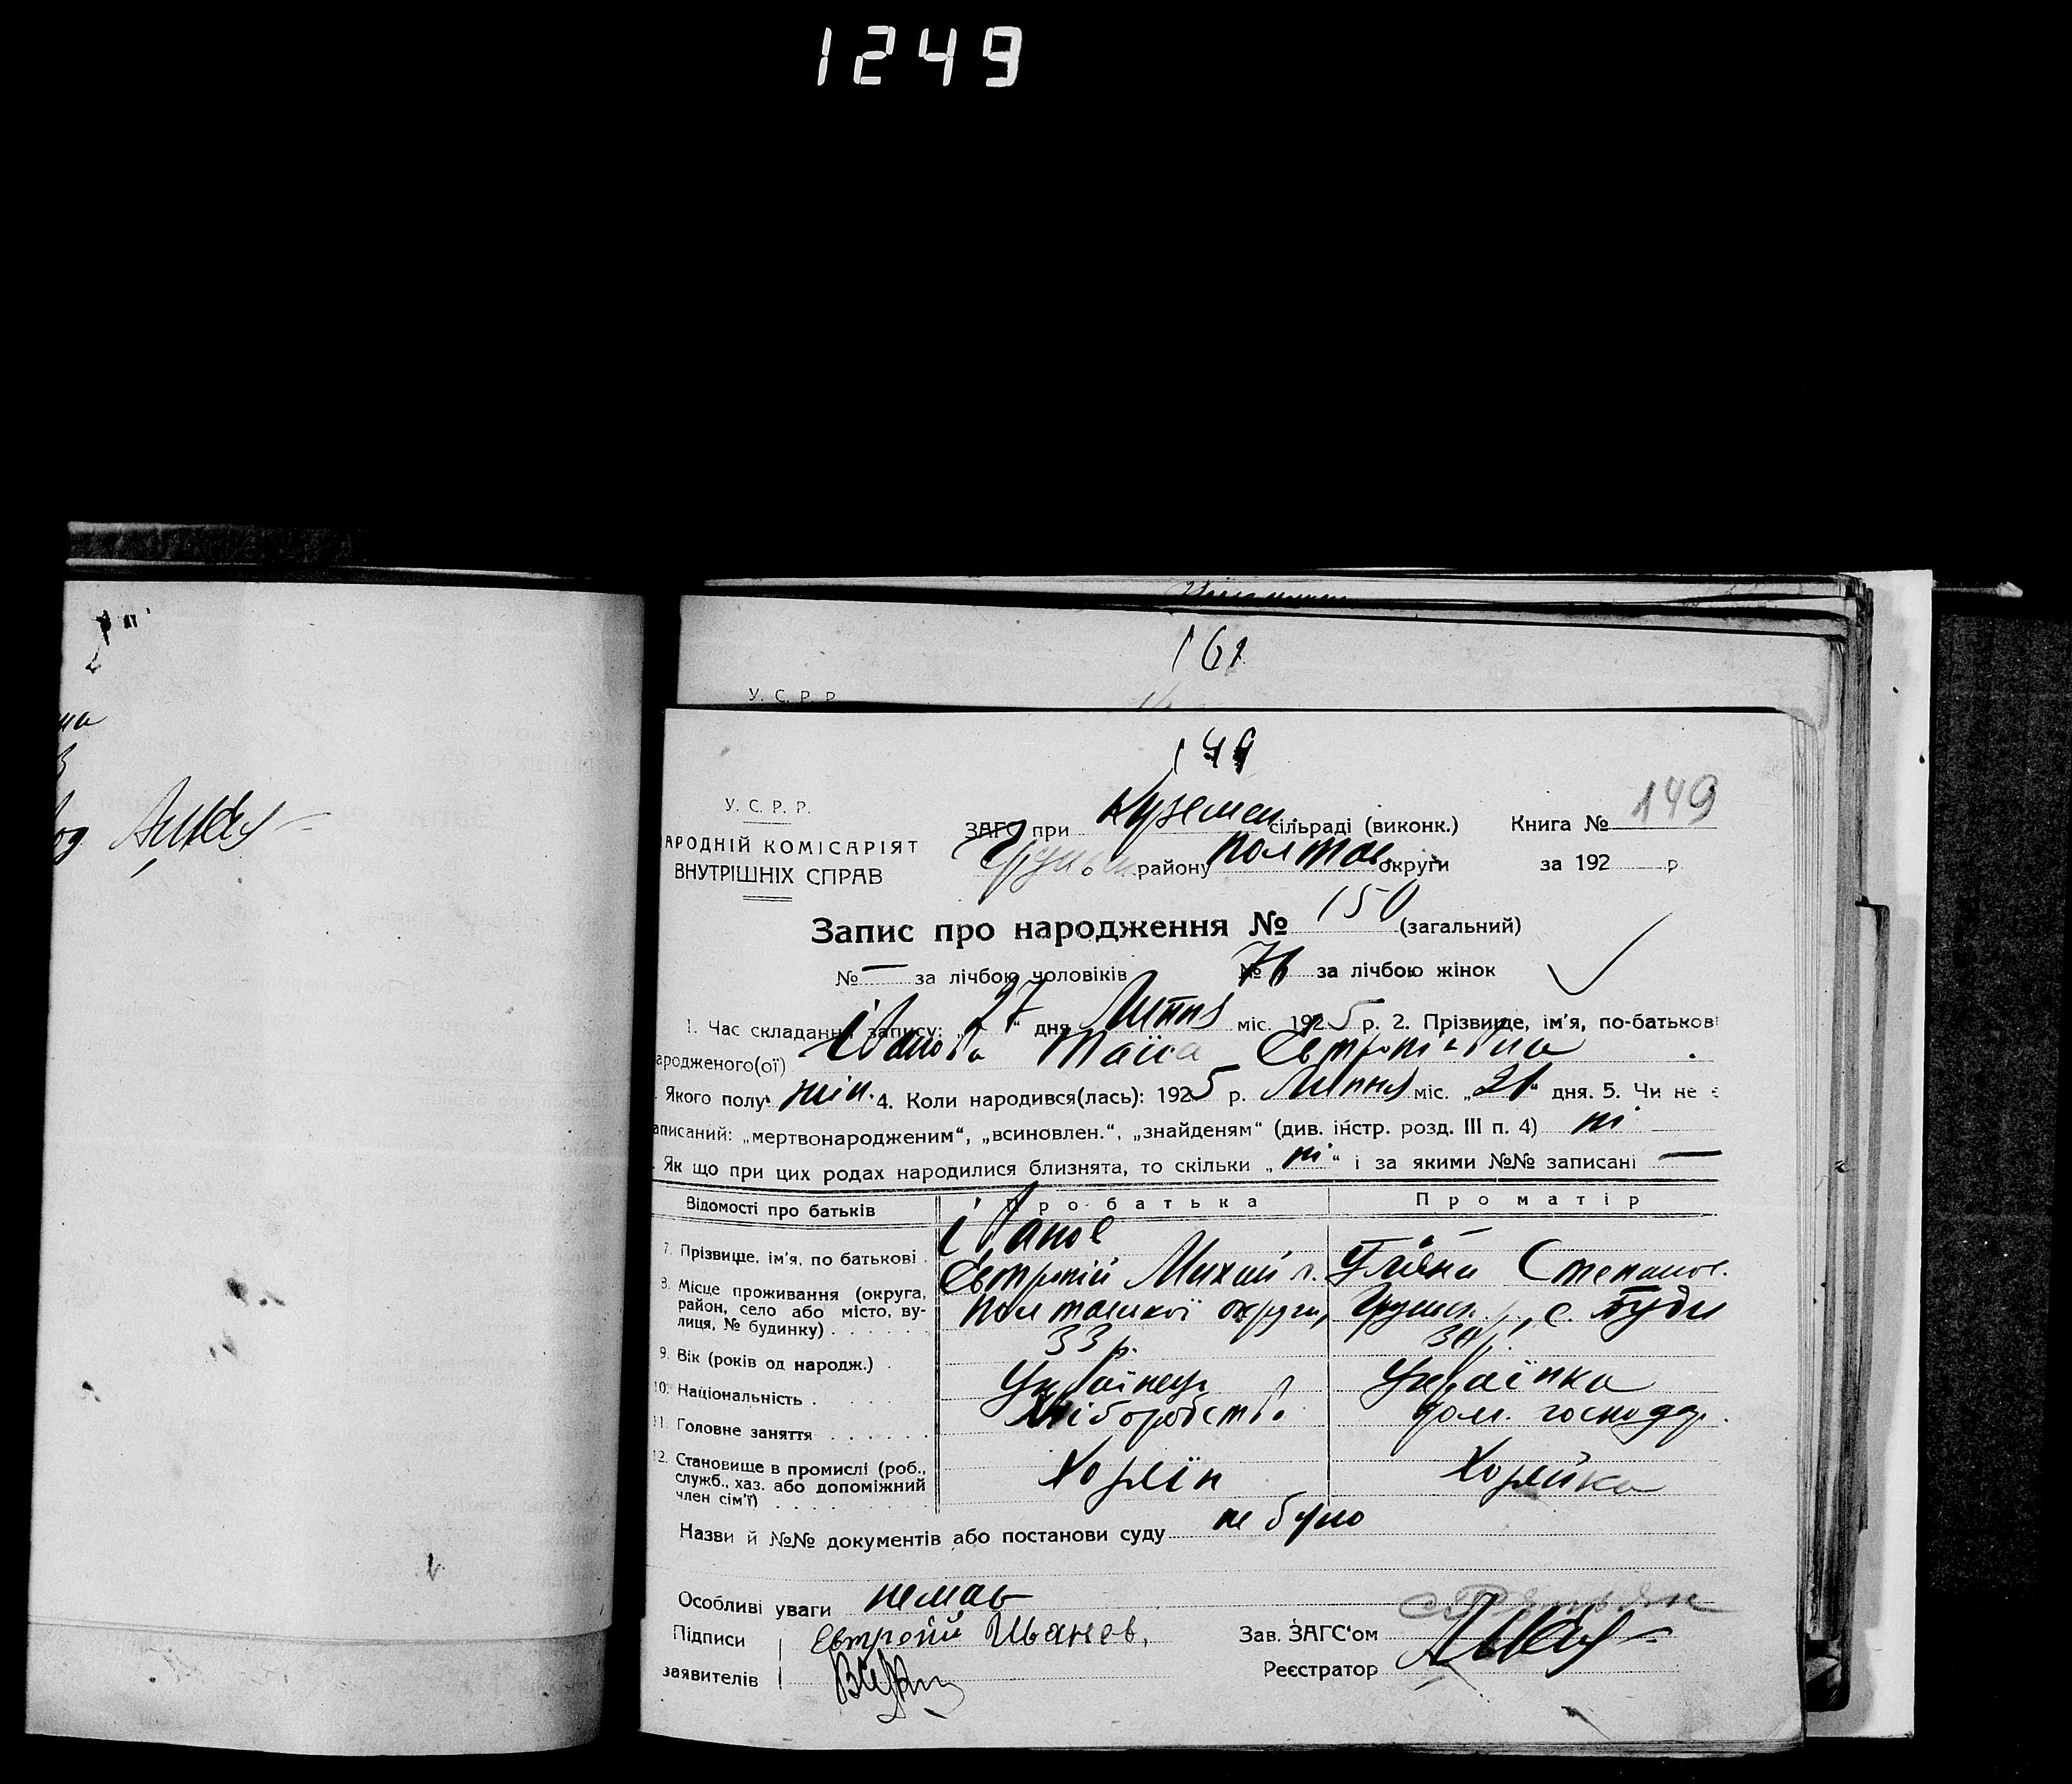 1249
161
У. С. Р. Р.
149
У. С. Р. Р.
АРОДНІЙ КОМІСАРІЯТ
ВНУТРІШНІХ СПРАВ
ЗАГС при Куземен. сільраді (виконк.) Книга № 149
району Полтав. округи за 192 р
Запис про народження № 150 (загальний)
№ — за лічбою чоловіків № 76 за лічбою жінок
1. Час складання запису: „27“ дня Липня міс. 1925 р. 2. Прізвище, ім'я, по-батькові
ародженого(ої) Іванова Таїса Євтропіївна
Якого полу жін. 4. Коли народився(лась): 1925 р. Липня міс. „21“ дня. 5. Чи не є
аписаний: „мертвонародженим“, „всиновлен.“, „знайденям“ (див. інстр. розд. III п. 4) ні
Як що при цих родах народилися близнята, то скільки „ні“ і за якими №№ записані —
Відомості про батьків Про батька Про матір
7. Прізвище, ім'я, по батькові Іванов
Євтропій Михайл. Уляна Степанов.
8. Місце проживання (округа, район, село або місто, вулиця, № будинку) Полтавської округи, Грунськ. р., с.
9. Вік (років од народж.) 33 р.
10. Національність Українець Українка
11. Головне заняття Хліборобство дом. господар.
12. Становище в промислі (роб., служб., хаз. або допоміжний член сім'ї) Хозяїн Хозяйка
Назви й №№ документів або постанови суду не було
Особливі уваги немає
Підписи Евтропій Иванов,
заявителів
Зав. ЗАГС'ом
Реєстратор